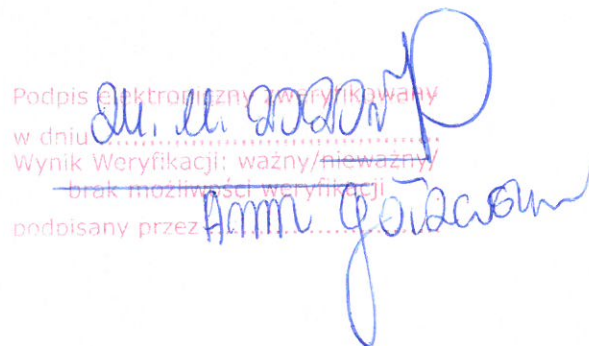 Podpis elektroniczny zweryfikowany
w dniu 24.11.2020r
Wynik Weryfikacji: ważny/nieważny/
brak możliwości weryfikacji
podpisany przez